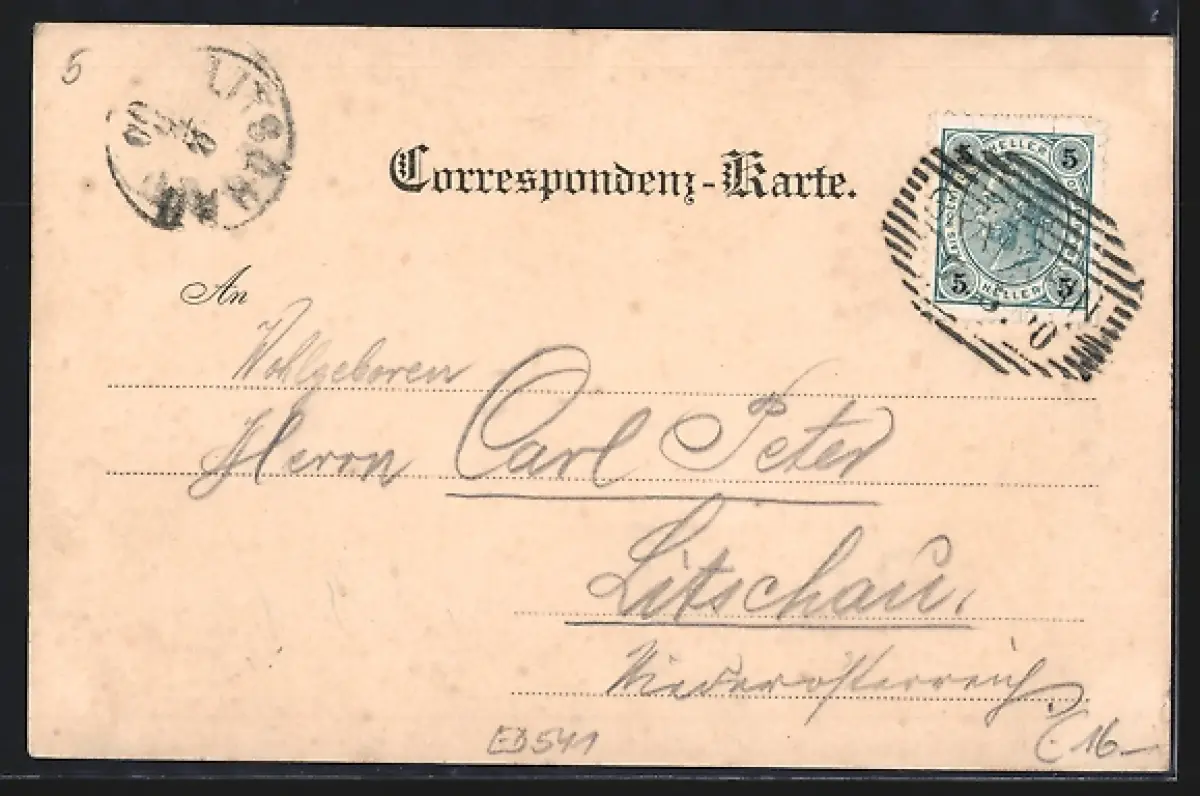 5
LITSCHAU
Correspondenz-Karte.
5 HELLER 5
5 HELLER 5
An
Wohlgeboren
Herrn Carl Peter
Litschau.
Niederösterreich
ED541
16—